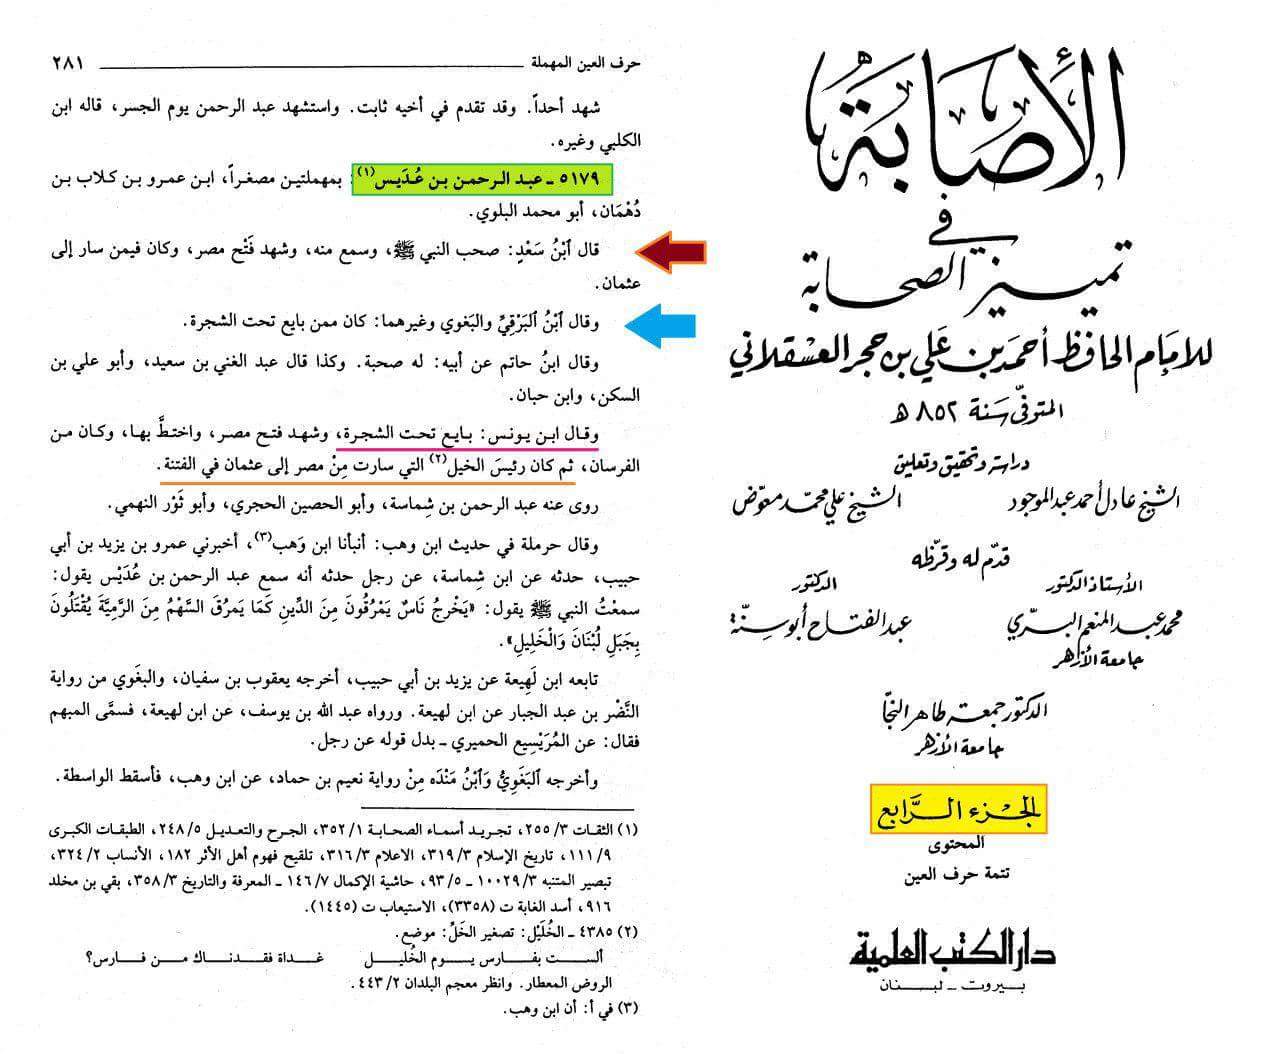 الأصابة
في
تمييز الصحابة
للإمام الحافظ أحمد بن علي بن حجر العسقلاني
المتوفى سنة ٨٥٢ هـ
دراسة وتحقيق وتعليق
الشيخ عادل أحمد عبد الموجود الشيخ علي محمد معوض
قدم له وقرظه
الأستاذ الدكتور الدكتور
محمد عبد المنعم البري عبد الفتاح أبو سنة
جامعة الأزهر
الدكتور جمعة طاهر النجا
جامعة الأزهر
الجزء الرابع
المحتوى
تتمة حرف العين
دار الكتب العلمية
بيروت - لبنان
حرف العين المهملة ٢٨١
شهد أحداً. وقد تقدم في أخيه ثابت. واستشهد عبد الرحمن يوم الجسر، قاله ابن
الكلبي وغيره.
٥١٧٩ ـ عبد الرحمن بن عُدَيس(١): بمهملتين مصغراً، ابن عمرو بن كلاب بن
دُهْمَان، أبو محمد البلوي.
قال ٱبْنُ سَعْدٍ: صحب النبي ﷺ، وسمع منه، وشهد فَتْح مصر، وكان فيمن سار إلى
عثمان.
وقال ٱبْنُ البَرْقِيِّ والبَغوي وغيرهما: كان ممن بايع تحت الشجرة.
وقال ابنُ حاتم عن أبيه: له صحبة. وكذا قال عبد الغني بن سعيد، وأبو علي بن
السكن، وابن حبان.
وقال ابن يونس: بايع تحت الشجرة، وشهد فتح مصر، واختطَّ بها، وكان من
الفرسان، ثم كان رئيسَ الخيل(٢) التي سارت مِنْ مصر إلى عثمان في الفتنة.
روى عنه عبد الرحمن بن شِماسة، وأبو الحصين الحجري، وأبو ثَوْر النهمي.
وقال حرملة في حديث ابن وهب: أنبأنا ابن وَهب(٣)، أخبرني عمرو بن يزيد بن أبي
حبيب، حدثه عن ابن شِماسة، عن رجل حدثه أنه سمع عبد الرحمن بن عُدَيْس يقول:
سمعْتُ النبي ﷺ يقول: «يَخْرجُ نَاسٌ يَمْرُقُونَ مِنَ الدِّينِ كَمَا يَمرقُ السَّهْمُ مِنَ الرَّمِيَّةِ يُقْتَلُونَ
بِجَبَلِ لُبْنَانَ وَالْخَلِيلِ».
تابعه ابن لَهِيعة عن يزيد بن أبي حبيب، أخرجه يعقوب بن سفيان، والبغَوي من رواية
النَّضْر بن عبد الجبار عن ابن لهيعة. ورواه عبد الله بن يوسف، عن ابن لهيعة، فسمَّى المبهم
فقال: عن المُرَيْسِيع الحميري ـ بدل قوله عن رجل.
وأخرجه ٱلبَغَوِيُّ وَٱبْنُ مَنْدَه مِنْ رواية نعيم بن حماد، عن ابن وهب، فأسقط الواسطة.
(١) الثقات ٣/ ٢٥٥، تجريد أسماء الصحابة ١/ ٣٥٢، الجرح والتعديل ٥/ ٢٤٨، الطبقات الكبرى
٩/ ١١١، تاريخ الإسلام ٣/ ٣١٩، الاعلام ٣/ ٣١٦، تلقيح فهوم أهل الأثر ١٨٢، الأنساب ٢/ ٣٢٤،
تبصير المتنبه ٣/ ١٠٠٢٩ ـ ٥/ ٩٣، حاشية الإكمال ٧/ ١٤٦ ـ المعرفة والتاريخ ٣/ ٣٥٨، بقي بن مخلد
٩١٦، أسد الغابة ت (٣٣٥٨)، الاستيعاب ت (١٤٤٥).
(٢) ٤٣٨٥ ـ الخُلَيْل: تصغير الخَلِّ: موضع.
ألست بفارس يوم الخُليل غداة فقدناك من فارس؟
الروض المعطار. وانظر معجم البلدان ٢/ ٤٤٣.
(٣) في أ: أن ابن وهب.